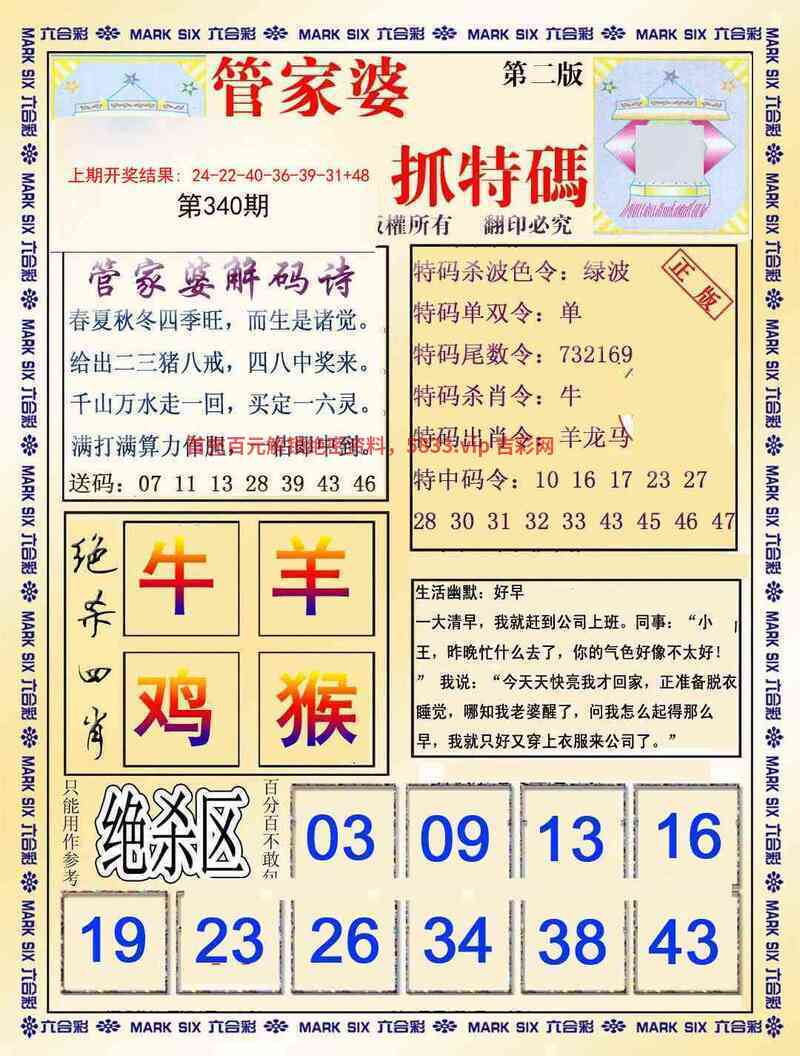 MARK SIX 六合彩 MARK SIX 六合彩 MARK SIX 六合彩 MARK SIX 六合彩
管家婆
第二版
上期开奖结果：24-22-40-36-39-31+48
抓特碼
第340期
權所有 翻印必究
管家婆解码诗
春夏秋冬四季旺，而生是诸觉。
给出二三猪八戒，四八中奖来。
千山万水走一回，买定一六灵。
满打满算力
送码：07 11 13 28 39 43 46
特码杀波色令：绿波
正版
特码单双令：单
特码尾数令：732169
特码杀肖令：牛
特码出肖令：羊龙马
特中码令：10 16 17 23 27
28 30 31 32 33 43 45 46 47
5833.vip 吉彩网
绝杀四肖
牛 羊
鸡 猴
生活幽默：好早
一大清早，我就赶到公司上班。同事：“小
王，昨晚忙什么去了，你的气色好像不太好！
” 我说：“今天天快亮我才回家，正准备脱衣
睡觉，哪知我老婆醒了，问我怎么起得那么
早，我就只好又穿上衣服来公司了。”
只能用作参考
绝杀区
百分百不敢包
03 09 13 16
19 23 26 34 38 43
MARK SIX 六合彩 MARK SIX 六合彩 MARK SIX 六合彩 MARK SIX 六合彩